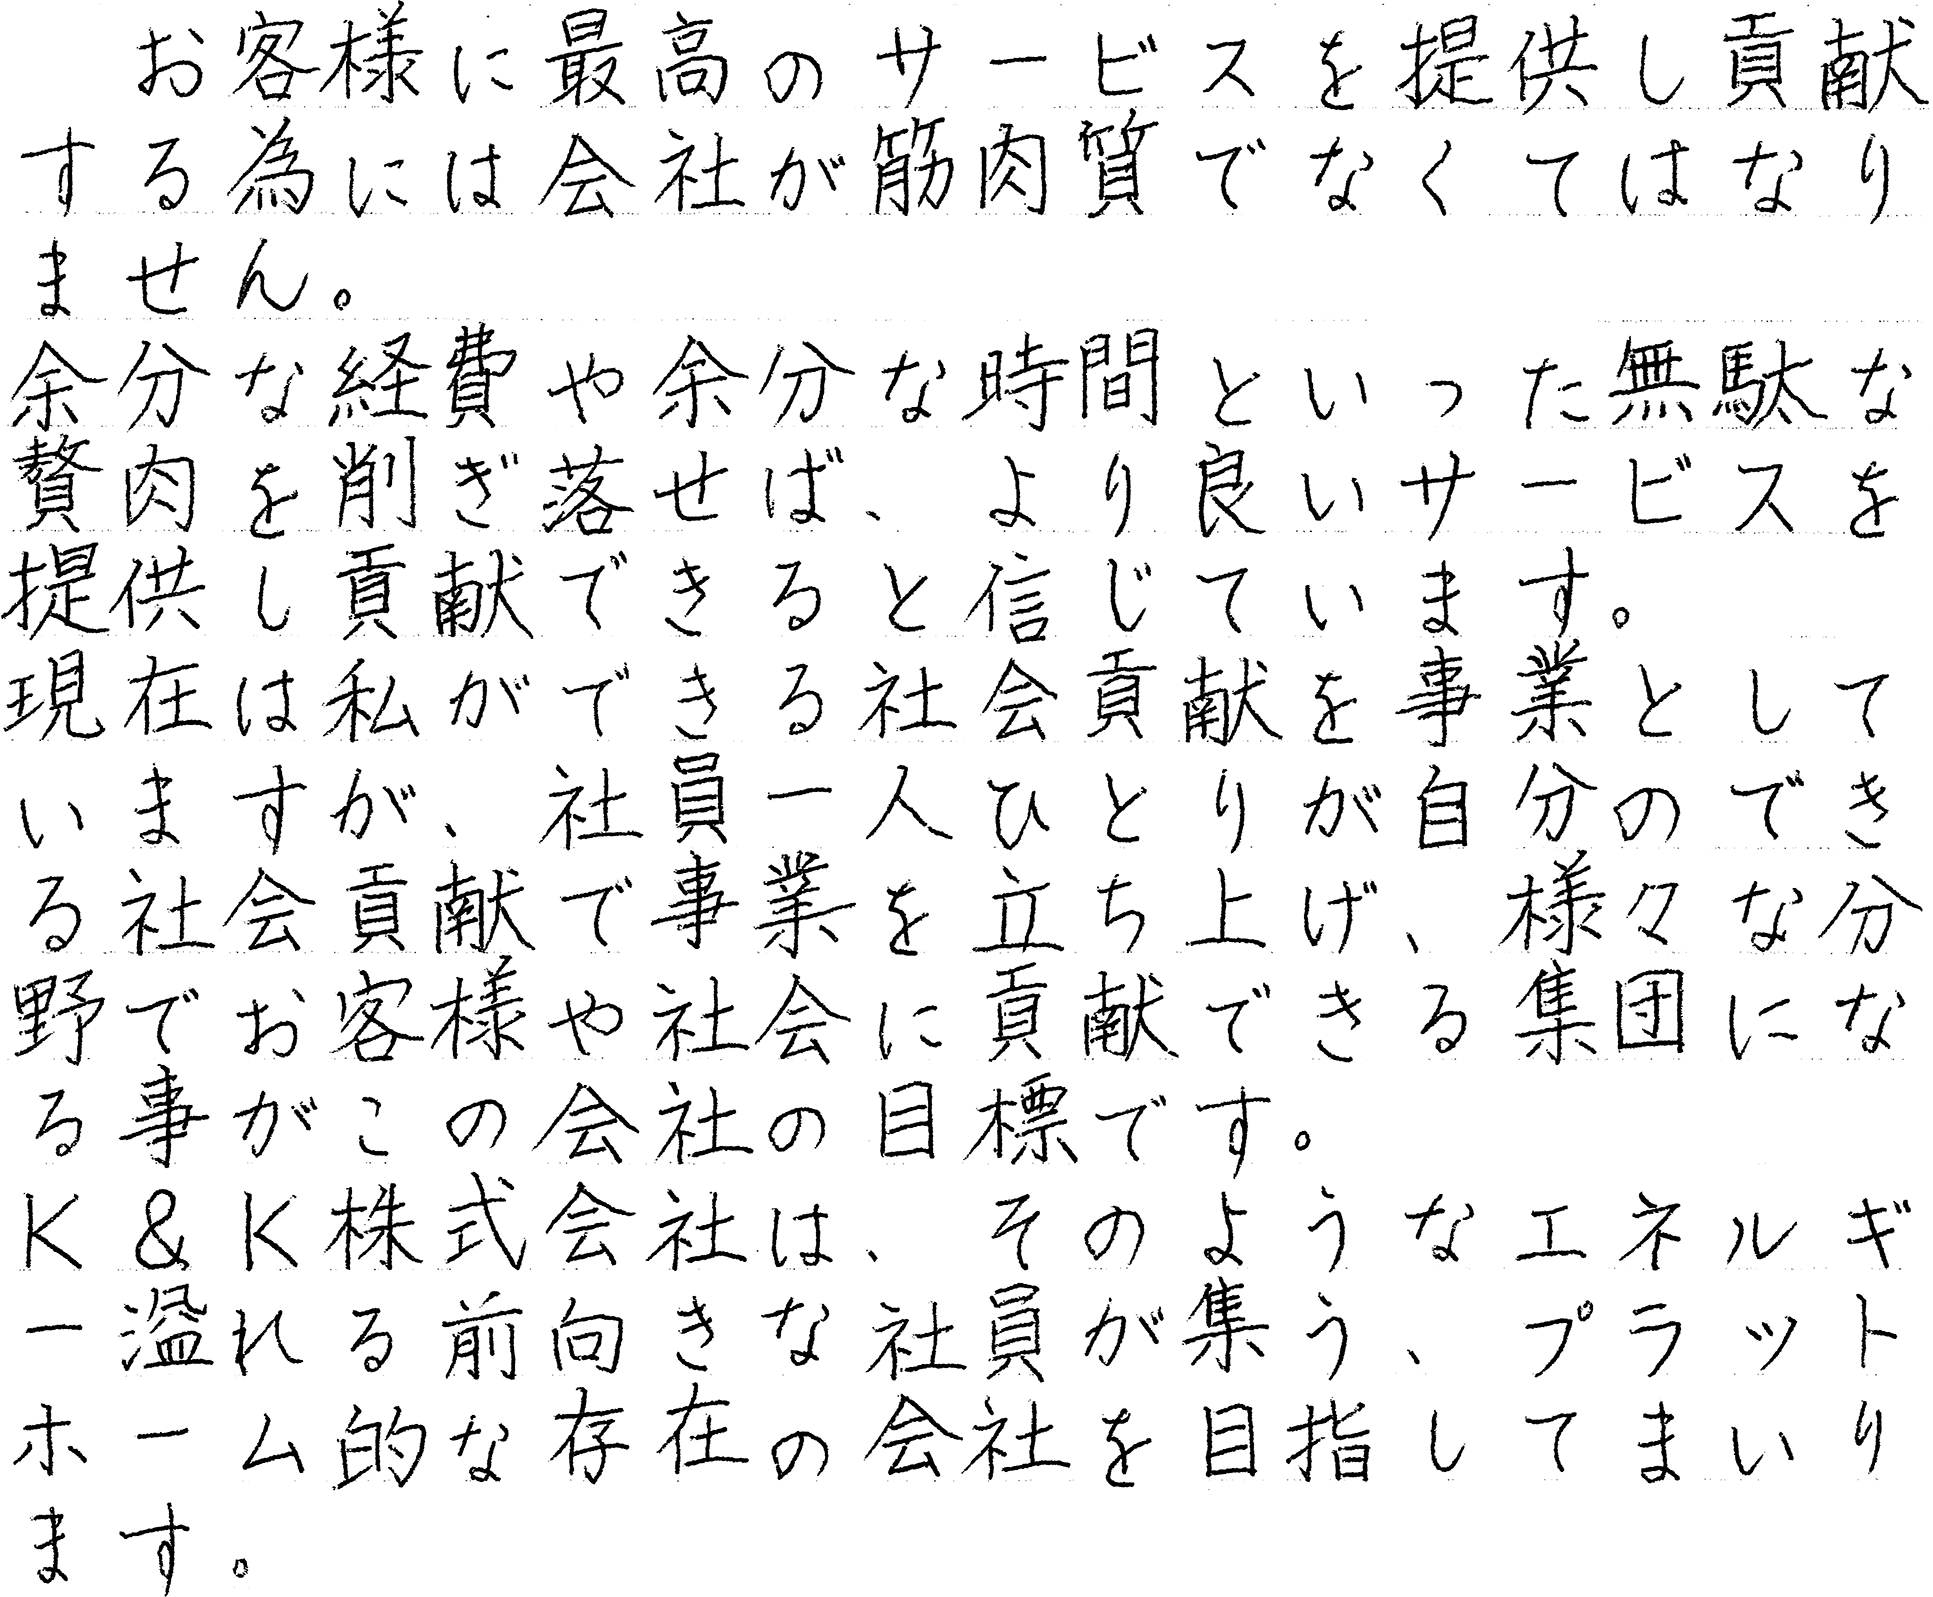 お客様に最高のサービスを提供し貢献
する為には会社が筋肉質でなくてはなり
ません。
余分な経費や余分な時間といった無駄な
贅肉を削ぎ落せば、より良いサービスを
提供し貢献できると信じています。
現在は私ができる社会貢献を事業として
いますが、社員一人ひとりが自分のでき
る社会貢献で事業を立ち上げ、様々な分
野でお客様や社会に貢献できる集団にな
る事がこの会社の目標です。
K&K株式会社は、そのようなエネルギ
ー溢れる前向きな社員が集う、プラット
ホーム的な存在の会社を目指してまいり
ます。